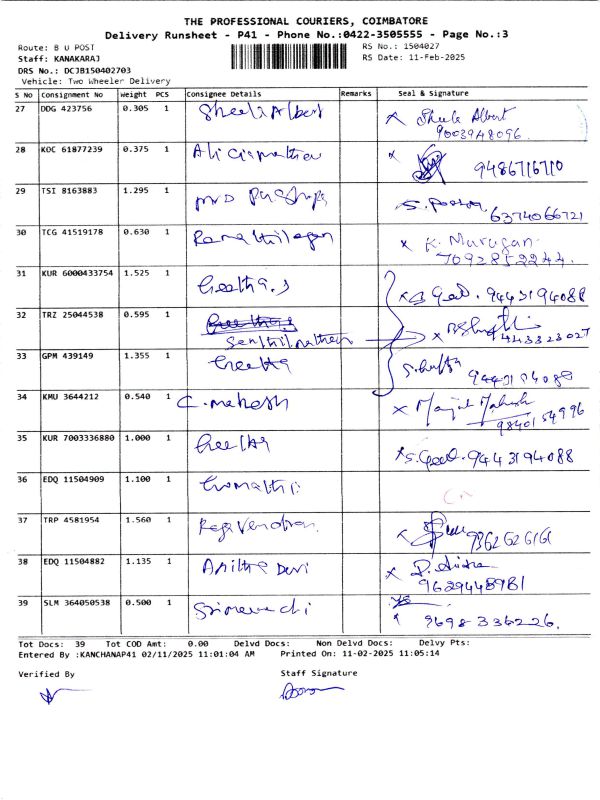 THE PROFESSIONAL COURIERS, COIMBATORE
Delivery Runsheet - P41 - Phone No.:0422-3505555 - Page No.:3
Route: B U POST
RS No.: 1504027
Staff: KANAKARAJ
RS Date: 11-Feb-2025
DRS No.: DCJB150402703
Vehicle: Two Wheeler Delivery
S No Consignment No Weight PCS Consignee Details Remarks Seal & Signature
27 DDG 423756 0.305 1 Sheela Albert Sheela Albert
9003948096.
28 KOC 61877239 0.375 1 9486716710
29 TSI 8163883 1.295 1 6374066721
30 TCG 41519178 0.630 1 K. Murugan
7092852244.
31 KUR 6000433754 1.525 1 Geetha.S 9443194088
32 TRZ 25044538 0.595 1
33 GPM 439149 1.355 1 Geetha
34 KMU 3644212 0.540 1 C. mahesh
9840154996
35 KUR 7003336880 1.000 1 Geetha S. Geet. 9443194088
36 EDQ 11504909 1.100 1
37 TRP 4581954 1.560 1 Ragavendran 9362626161
38 EDQ 11504882 1.135 1 Anitha Devi
9629448981
39 SLM 364050538 0.500 1
9698336226.
Tot Docs: 39 Tot COD Amt: 0.00 Delvd Docs: Non Delvd Docs: Delvy Pts:
Entered By :KANCHANAP41 02/11/2025 11:01:04 AM Printed On: 11-02-2025 11:05:14
Verified By Staff Signature